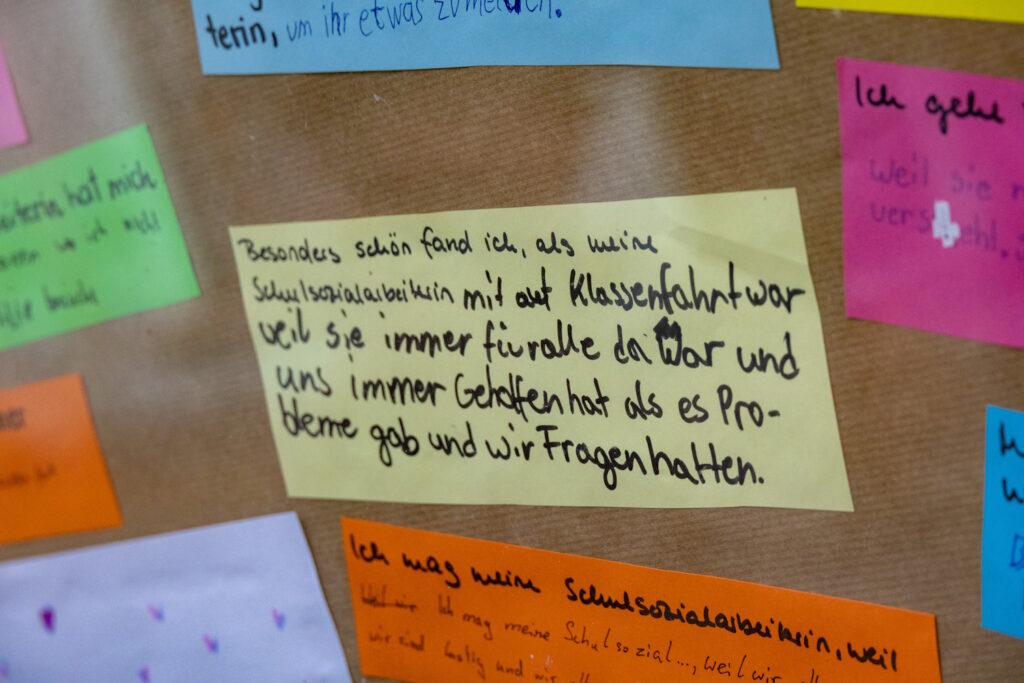 terin, um ihr etwas zu melden.
Ich gehe
weil sie
versteht.
eiterin hat mich
Besonders schön fand ich, als meine
Schulsozialarbeiterin mit auf Klassenfahrt war
weil sie immer für alle da war und
uns immer Geholfen hat als es Pro-
bleme gab und wir Fragen hatten.
Ich mag meine Schulsozialarbeiterin, weil
Weil wir Ich mag meine Schulsozial..., weil wir
wir sind lustig und wir